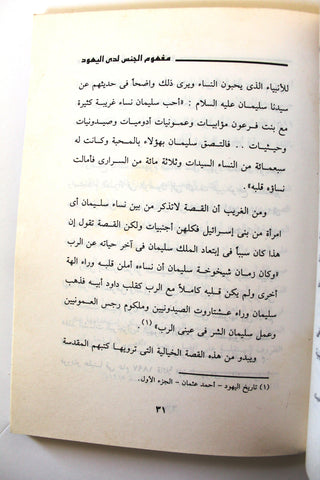 مفهوم الجنس لدى اليهود
للأنبياء الذى يحبون النساء ويرى ذلك واضحاً فى حديثهم عن
سيدنا سليمان عليه السلام : «أحب سليمان نساء غريبة كثيرة
مع بنت فرعون مؤابيات وعمونيات أدوميات وصيدونيات
وحيثيات .. فالتصق سليمان بهؤلاء بالمحبة وكانت له
سبعمائة من النساء السيدات وثلاثة مائة من السرارى فأمالت
نساؤه قلبه»
ومن الغريب أن القصة لاتذكر من بين نساء سليمان أى
امرأة من بنى إسرائيل فكلهن أجنبيات ولكن القصة تقول إن
هذا كان سبباً فى إبتعاد الملك سليمان فى آخر حياته عن الرب
«وكان زمان شيخوخة سليمان أن نساءه أملن قلبه وراء الهة
أخرى ولم يكن قلبه كاملاً مع الرب كقلب داود أبيه فذهب
سليمان وراء عشتاروت الصيدونيين وملكوم رجس العمونيين
وعمل سليمان الشر فى عينى الرب»(١)
ويبدو من هذه القصة الخيالية التى ترويها كتبهم المقدسة
(١) تاريخ اليهود - أحمد عثمان - الجزء الأول.
٣١